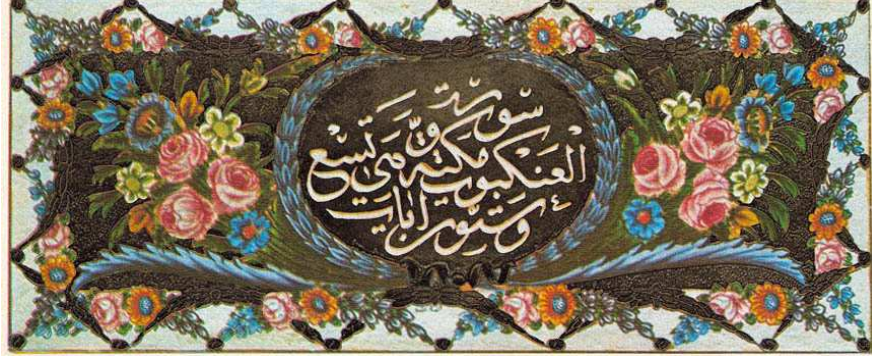 سورة
العنكبوت مكية وهي تسع
وستون آيات